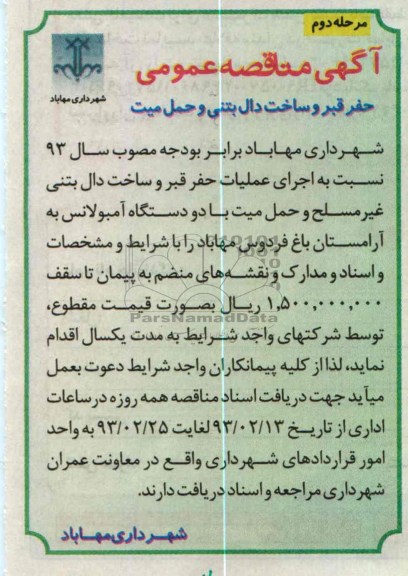 مرحله دوم
آگهی مناقصه عمومی
شهرداری مهاباد
حفر قبر و ساخت دال بتنی و حمل میت
شهرداری مهاباد برابر بودجه مصوب سال ۹۳
نسبت به اجرای عملیات حفر قبر و ساخت دال بتنی
غیر مسلح و حمل میت با دو دستگاه آمبولانس به
آرامستان باغ فردوس مهاباد را با شرایط و مشخصات
و اسناد و مدارک و نقشه‌های منضم به پیمان تا سقف
۱,۵۰۰,۰۰۰,۰۰۰ ریال بصورت قیمت مقطوع،
ParsNamadData
توسط شرکتهای واجد شرایط به مدت یکسال اقدام
نماید، لذا از کلیه پیمانکاران واجد شرایط دعوت بعمل
میآید جهت دریافت اسناد مناقصه همه روزه در ساعات
اداری از تاریخ ۹۳/۰۲/۱۳ لغایت ۹۳/۰۲/۲۵ به واحد
امور قراردادهای شهرداری واقع در معاونت عمران
شهرداری مراجعه و اسناد دریافت دارند.
شهرداری مهاباد